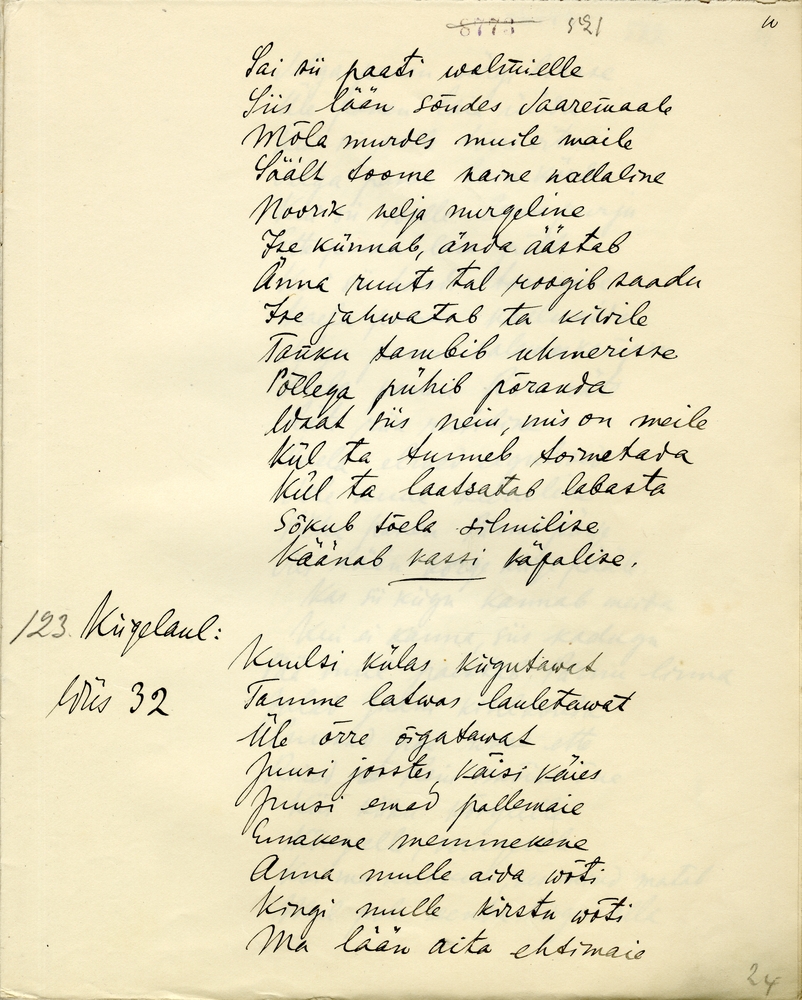 8773 521
Sai sii paati walmielle
Siis lään sõudes Saaremaale
Mõla murdes muile maile
Säält toome naine nädaline
Noorik nelja nurgeline
Ise künnab, ända äästab
Änna ruuts tal roogib saadu
Ise jahwatab ta kiwile
Tanku tambib uhmerisse
Põllega pühib põranda
Waat siis nein, mis on meile
Kül ta tunneb toimetada
Kül ta laatsatab labasta
Sõkub sõela silmilise
Käänab kassi käpalise.
123. Kiigelaul:
Wiis 32
Kuulsi külas kiigutawat
Tamme latwas lauletawat
Üle õrre õigatawat
Juusi joostes, käisi käies
Juusi emad pallemaie
Emakene memmekene
Anna mulle aida wõti
Kingi mulle kirstu wõti
Ma lään aita ehtimaie
24